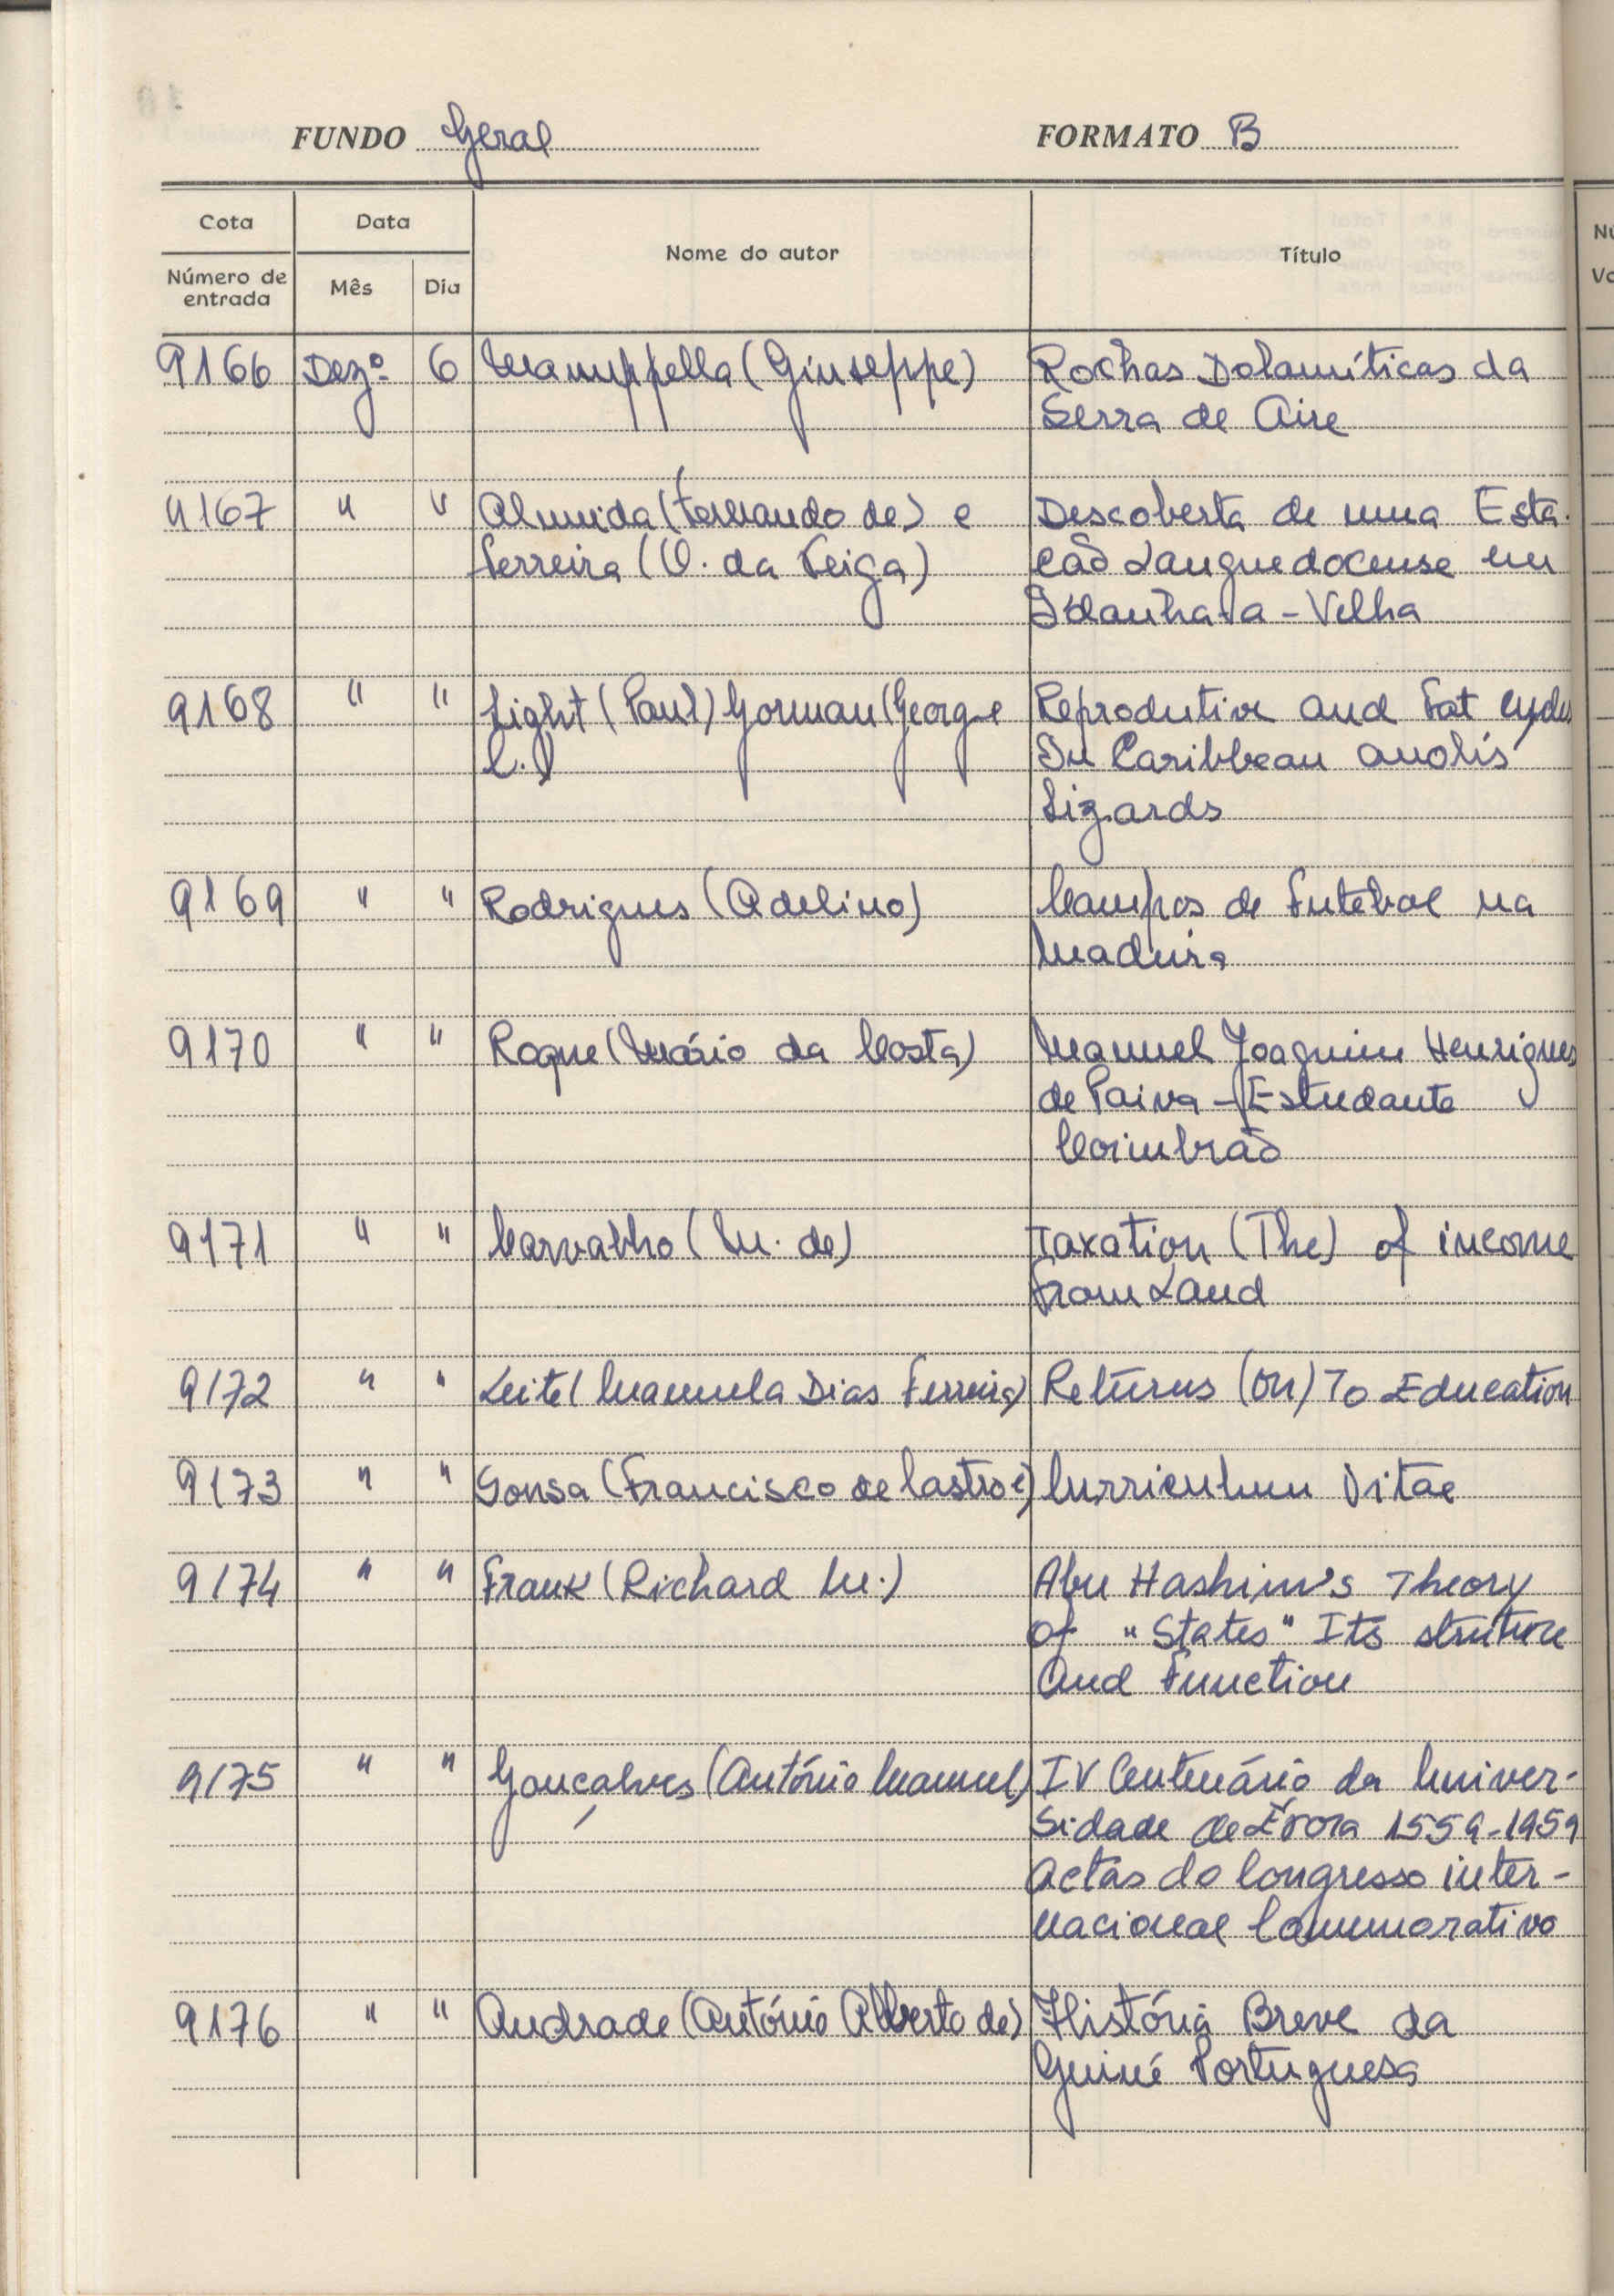 FUNDO Geral FORMATO B
Cota Data Nome do autor Título
Número de entrada Mês Dia
9166 Dezº 6 Manuppella (Giuseppe) Rochas Dolomíticas da
Serra de Aire
9167 " " Almeida (Fernando de) e Descoberta de uma Esta-
Ferreira (O. da Veiga) ção Languedocense em
Idanha-a-Velha
9168 " " Light (Paul) Gorman (George Reprodutive and Fat Cycles
C.) In Caribbean anolis
Lizards
9169 " " Rodrigues (Adelino) Campos de Futebol na
Madeira
9170 " " Roque (Mário da Costa) Manuel Joaquim Henriques
de Paiva - Estudante
Coimbrão
9171 " " Carvalho (M. de) Taxation (The) of income
from Land
9172 " " Leite (Manuela Dias Ferreira) Returns (On) To Education
9173 " " Sousa (Francisco de Castro e) Curriculum Vitae
9174 " " Frank (Richard M.) Abu Hashim's Theory
of "States" Its struture
And Function
9175 " " Gonçalves (António Manuel) IV Centenário da Univer-
sidade de Évora 1559-1959
Actas do Congresso inter-
nacional Commorativo
9176 " " Andrade (António Alberto de) História Breve da
Guiné Portuguesa